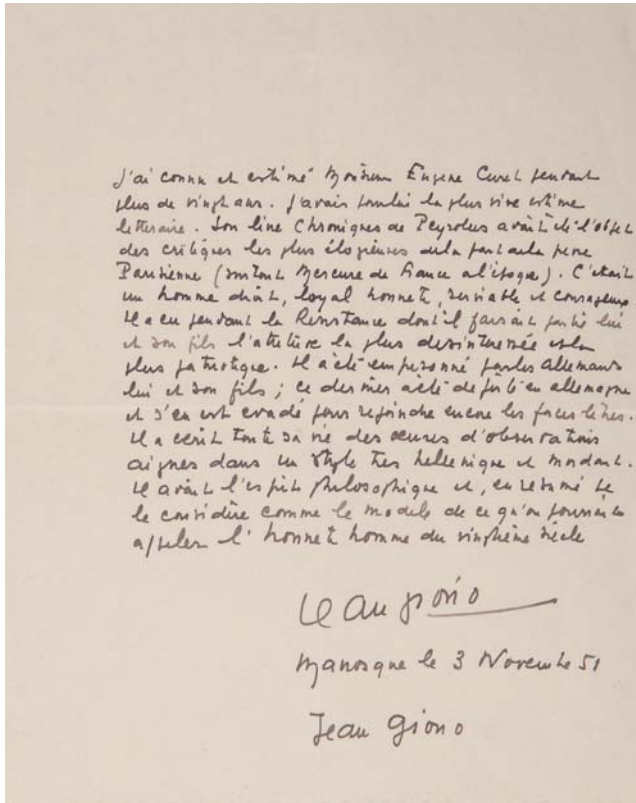 J'ai connu et estimé Monsieur Eugene Curet pendant
plus de vingt ans. J'avais pour lui la plus vive estime
litteraire. Son livre Chroniques de Peyrolus avait été l'objet
des critiques les plus élogieuses de la part de la presse
Parisienne (surtout Mercure de France a l'époque). C'était
un homme droit, loyal honnete, serviable et courageux
Il a eu pendant la Resistance dont il faisait partie lui
et son fils l'attitude la plus desinteressée et la
plus patriotique. Il a été emprisonné par les Allemands
lui et son fils ; ce dernier a été deporté en allemagne
et s'en est evadé pour rejoindre encore les forces libres.
Il a ecrit toute sa vie des oeuvres d'observations
aigues dans un style tres hellenique et mordant.
Il avait l'esprit philosophique et, en resumé je
le considère comme le modele de ce qu'on pourrait
appeler l'honnete homme du vingtième siècle
Jean Giono
Manosque le 3 Novembre 51
Jean Giono